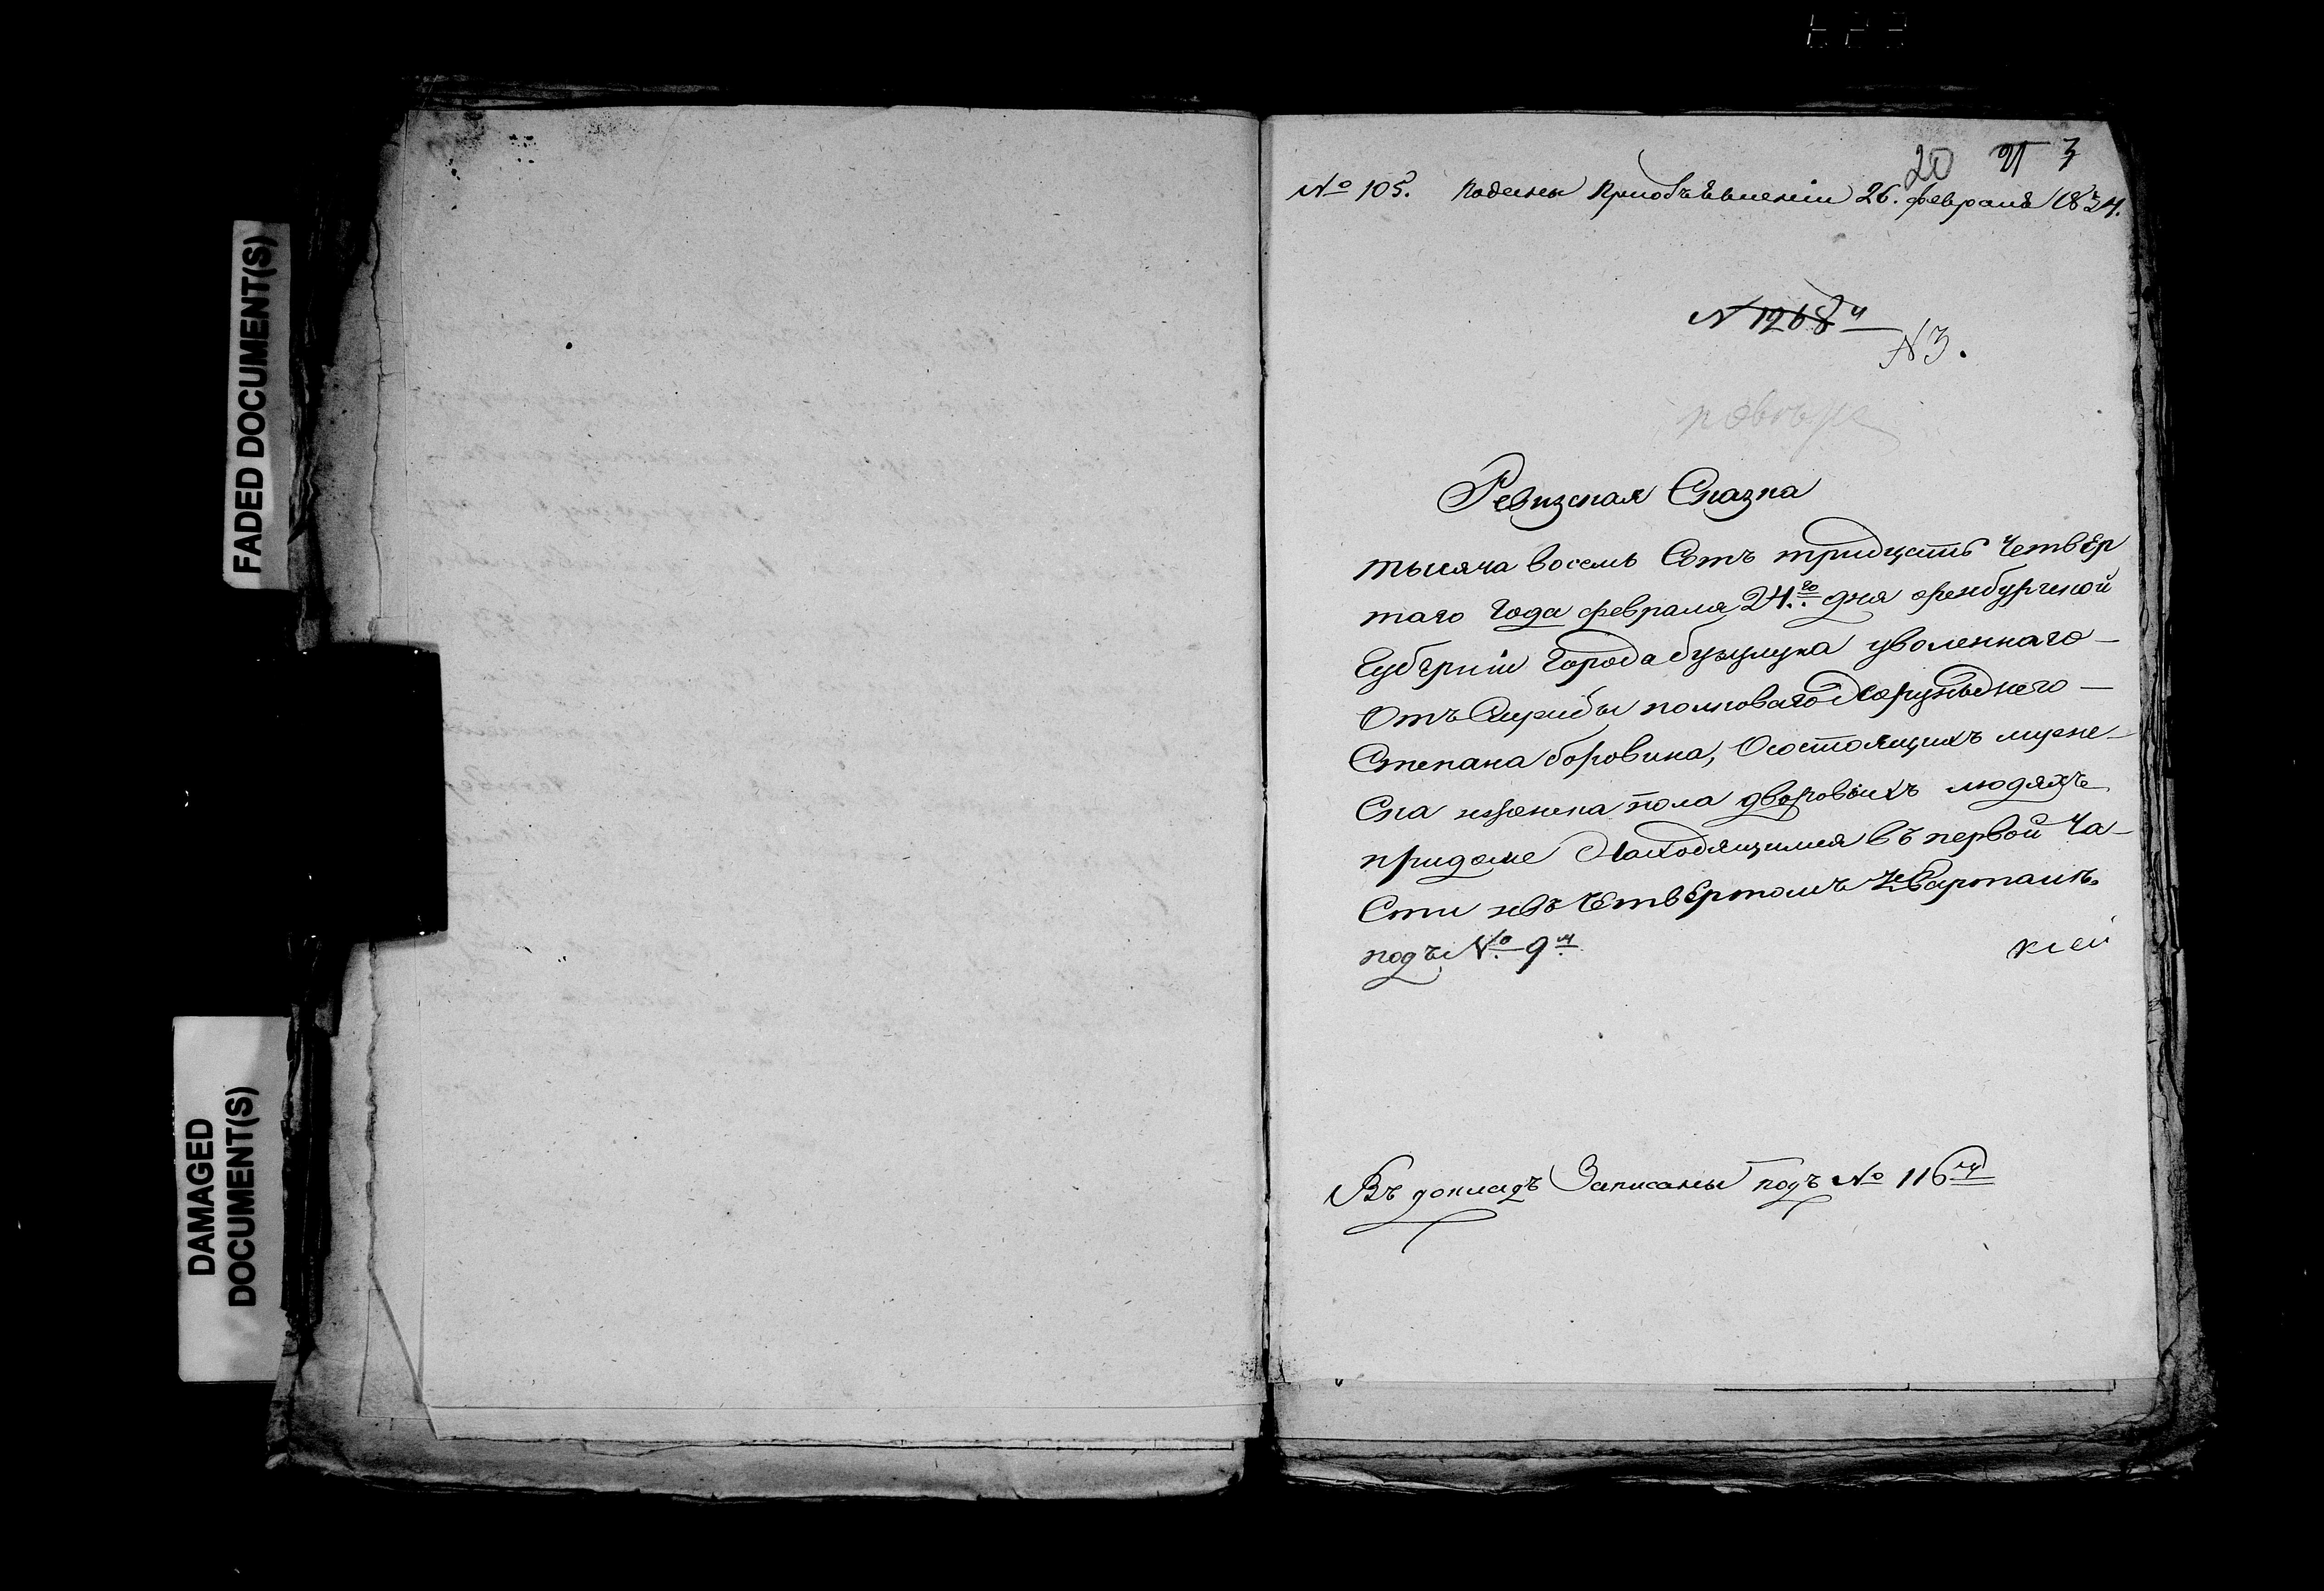 FADED DOCUMENT(S)
DAMAGED
DOCUMENT(S)
20 21 3
№ 105. Поданы Приобъѣвленіи 26. февраля 1834.
N 1268й
N3.
Ревизская Сказка
тысяча восемь Сотъ тридцать Четвер
таго Года февраля 24.го дня оренбургской
Губерніи Города бузулука уволеннаго
Отъ Службы полковаго Хорунъжего
Степана боровина, Осостоящихъ муже
Ска иженска пола дворовыхъ людяхъ
придоме Находящимся въ первой Ча
Сти ивъ Четвертомъ Квартале
подъ №. 9м
Въ докладъ Записаны подъ № 116м